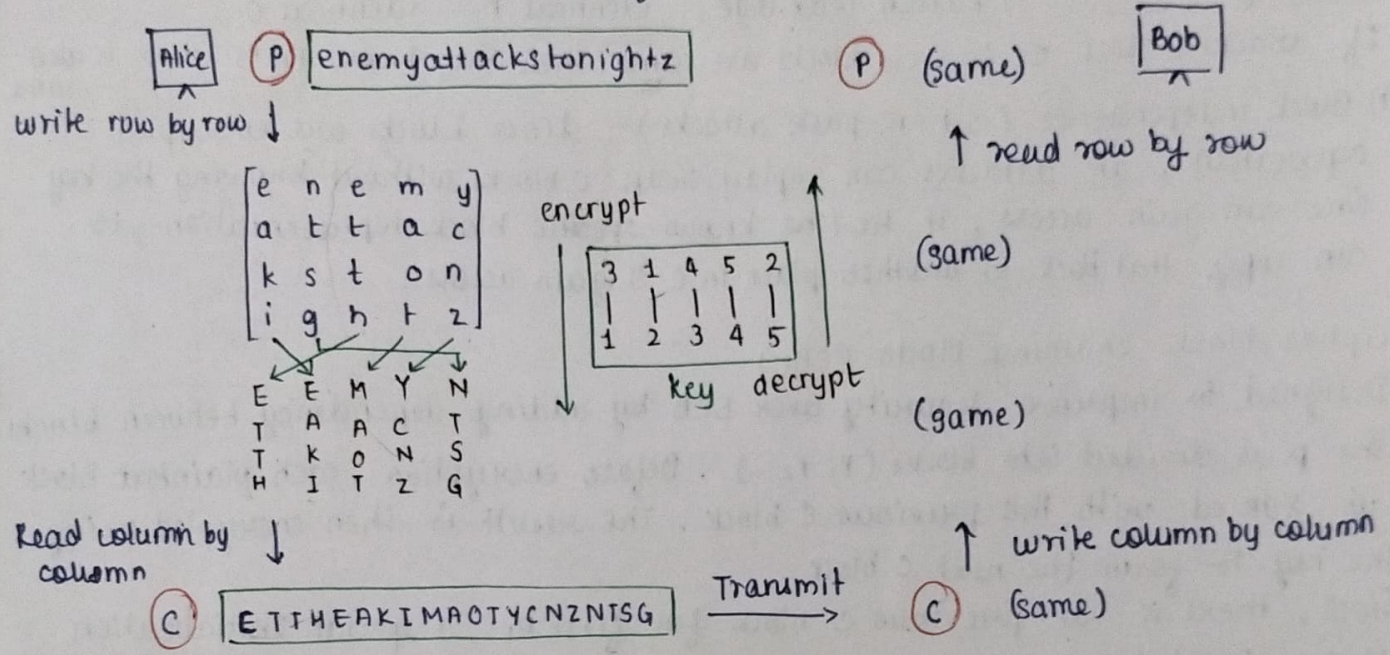 Alice P enemyattackstonightz P (same) Bob
write row by row ↓
↑ read row by row
e n e m y
a t t a c
k s t o n
i g h t z
encrypt
3 1 4 5 2
1 2 3 4 5
key decrypt
(same)
(game)
E E M Y N
T A A C T
T K O N S
H I T Z G
Read column by ↓
column
↑ write column by column
C ETTHEAKIMAOTYCNZNTSG Transmit → C (same)